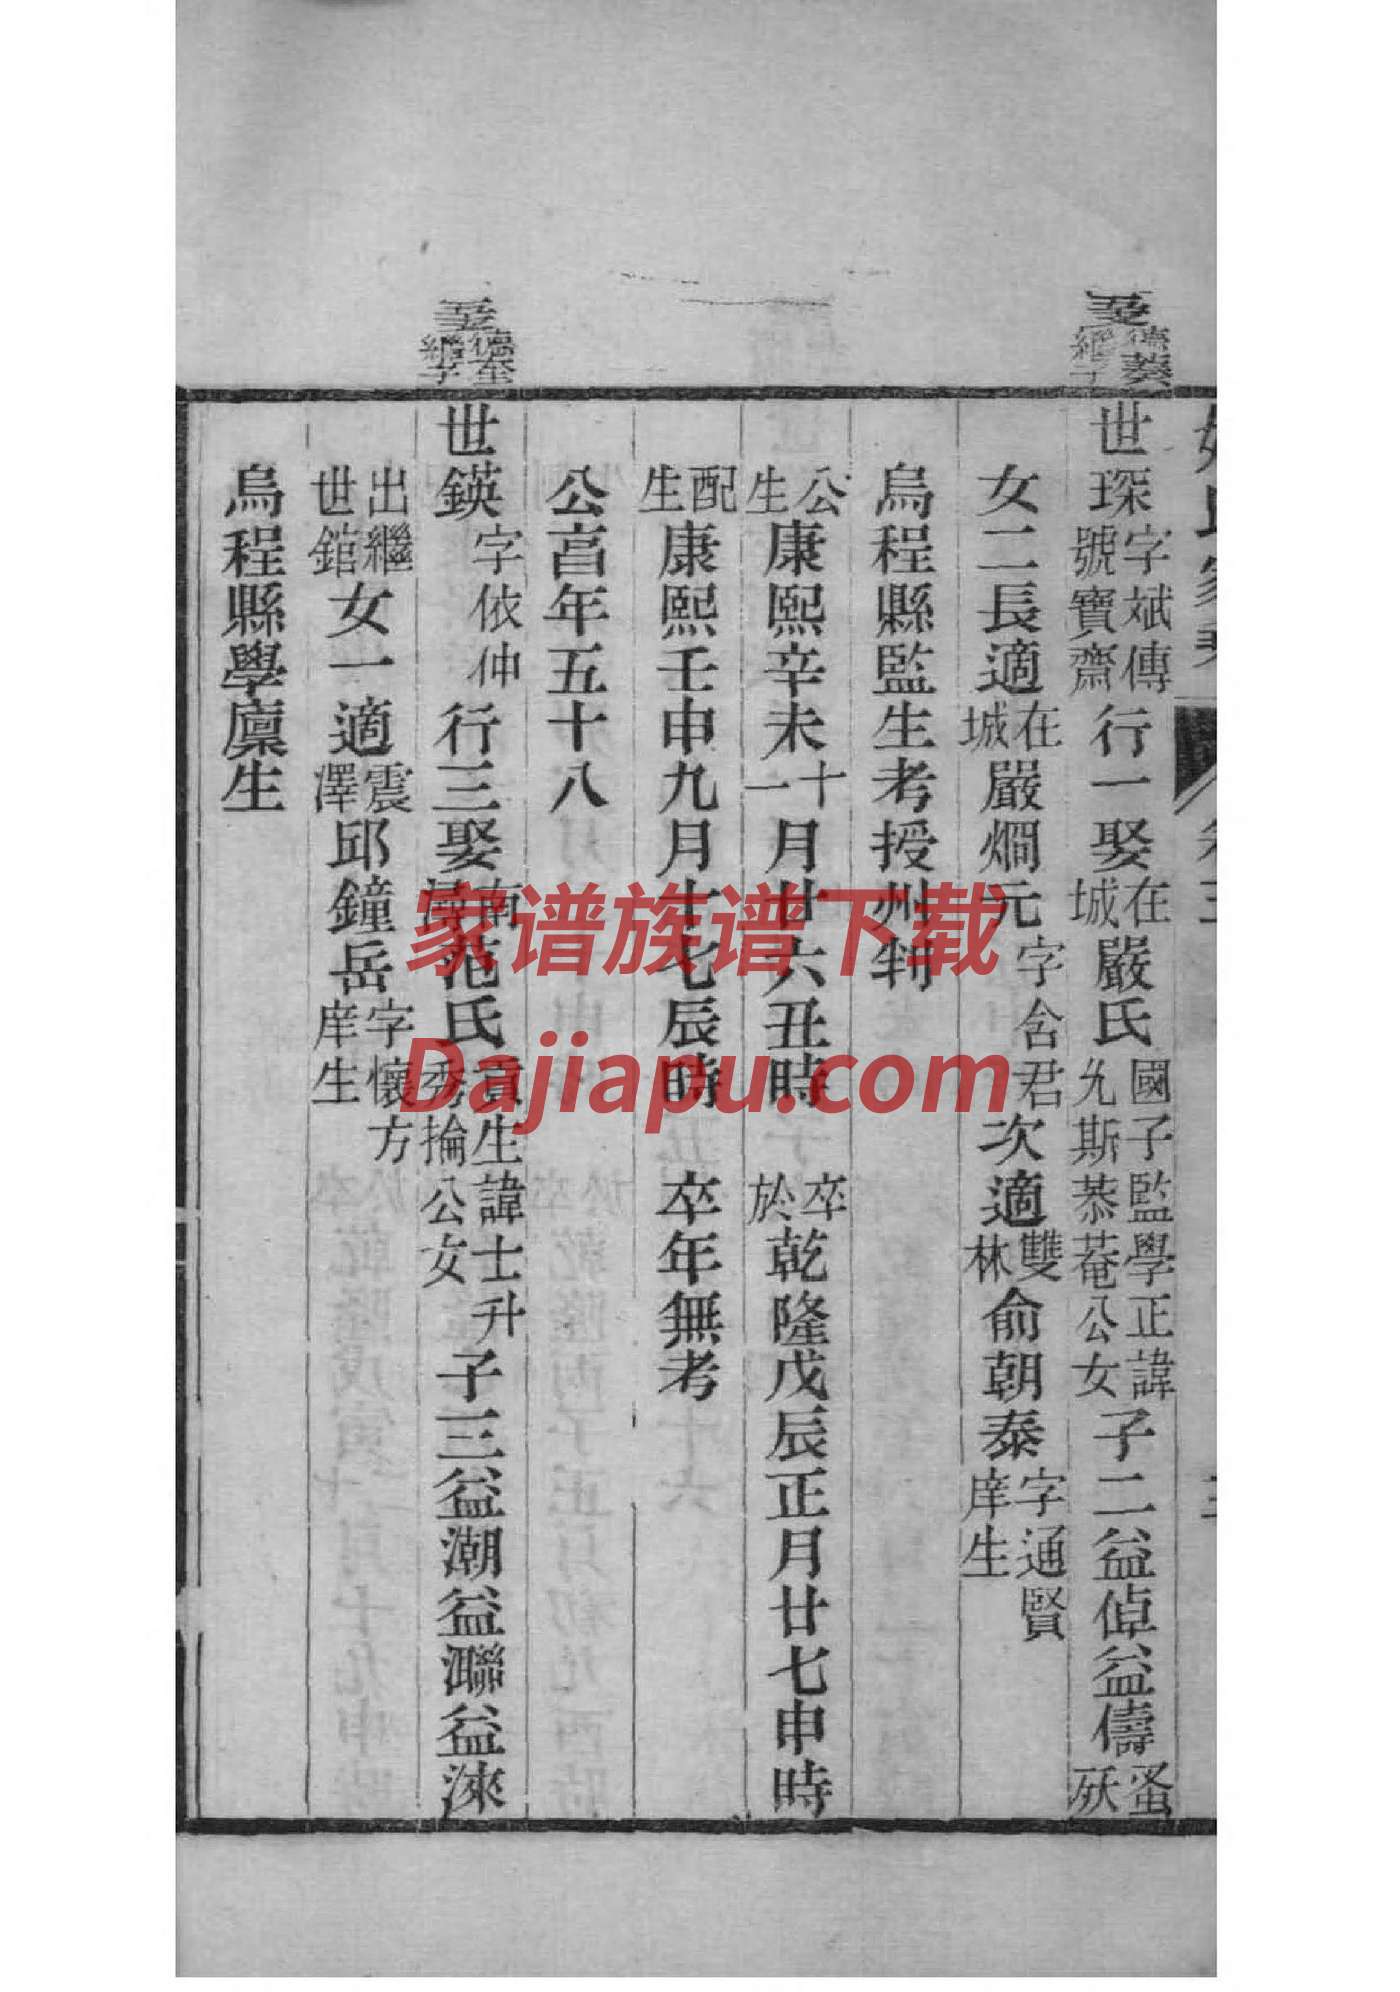 世琛字斌傳號寶齋行一娶在城嚴氏國子監學正諱允斯恭菴公女子二益倬益儔蚤殀
女二長適在城嚴烱元字含君次適雙林俞朝泰字通賢庠生
烏程縣監生考授州判
公生康熙辛未十一月廿六丑時 卒於乾隆戊辰正月廿七申時
配生康熙壬申九月十七辰時 卒年無考
公亯年五十八
世鍈字依仲行三娶南潯范氏貢生諱士升秀掄公女子三益潮益灦益淶
出繼世錧女一適震澤邱鐘岳字懷方庠生
烏程縣學廩生
家谱族谱下载
Dajiapu.com